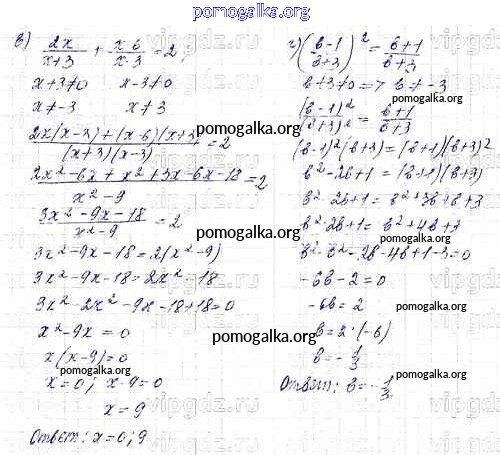 pomogalka.org
в) 2x/(x+3) + (x-6)/(x-3) = 2
x+3≠0 x-3≠0
x≠-3 x≠3
(2x(x-3)+(x-6)(x+3))/((x+3)(x-3)) = 2
(2x²-6x+x²+3x-6x-18)/(x²-9) = 2
(3x²-9x-18)/(x²-9) = 2
3x²-9x-18=2(x²-9)
3x²-9x-18=2x²-18
3x²-2x²-9x-18+18=0
x²-9x=0
x(x-9)=0
x=0; x-9=0
x=9
Ответ: x=0; 9
г) ((в-1)/(в+3))² = (в+1)/(в+3)
в+3≠0 => в≠-3
(в-1)²/(в+3)² = (в+1)/(в+3)
(в-1)²(в+3)=(в+1)(в+3)²
в²-2в+1=(в+1)(в+3)
в²-2в+1=в²+3в+в+3
в²-2в+1=в²+4в+3
в²-в²-2в-4в+1-3=0
-6в-2=0
-6в=2
в=2:(-6)
в=-1/3
Ответ: в=-1/3
pomogalka.org
pomogalka.org
pomogalka.org
pomogalka.org
pomogalka.org
pomogalka.org
pomogalka.org
pomogalka.org